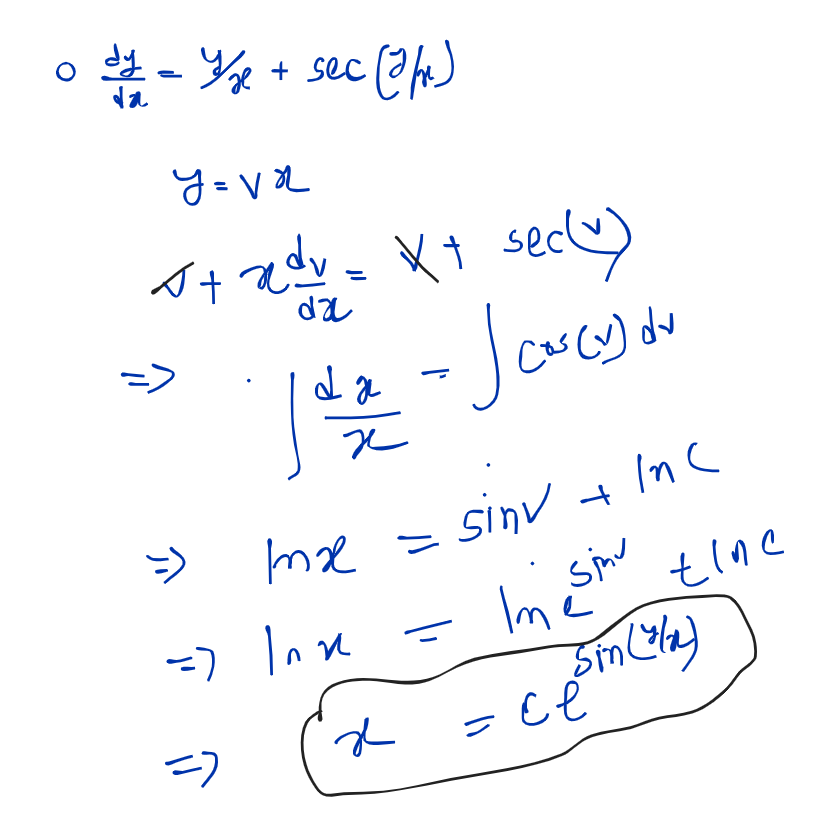 o dy/dx = y/x + sec(y/x)
y = vx
v + x dv/dx = v + sec(v)
=> ∫ dx/x = ∫ cos(v) dv
=> ln x = sin v + ln c
=> ln x = ln e^sin v + ln c
=> x = c e^sin(y/x)